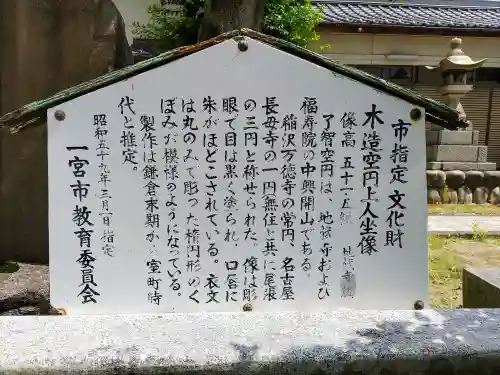 市指定 文化財
木造空円上人坐像
像高 五十一・五糎 地蔵寺蔵
了智空円は、地蔵寺および
福寿院の中興開山である。
稲沢万徳寺の常円、名古屋
長母寺の一円無住と共に尾張
の三円と称せられた。像は彫
眼で目は黒く塗られ、口唇に
朱がほどこされている。衣文
は丸のみで彫った楕円形のく
ぼみが模様のようになっている。
製作は鎌倉末期か、室町時
代と推定。
昭和五十九年三月一日指定
一宮市教育委員会